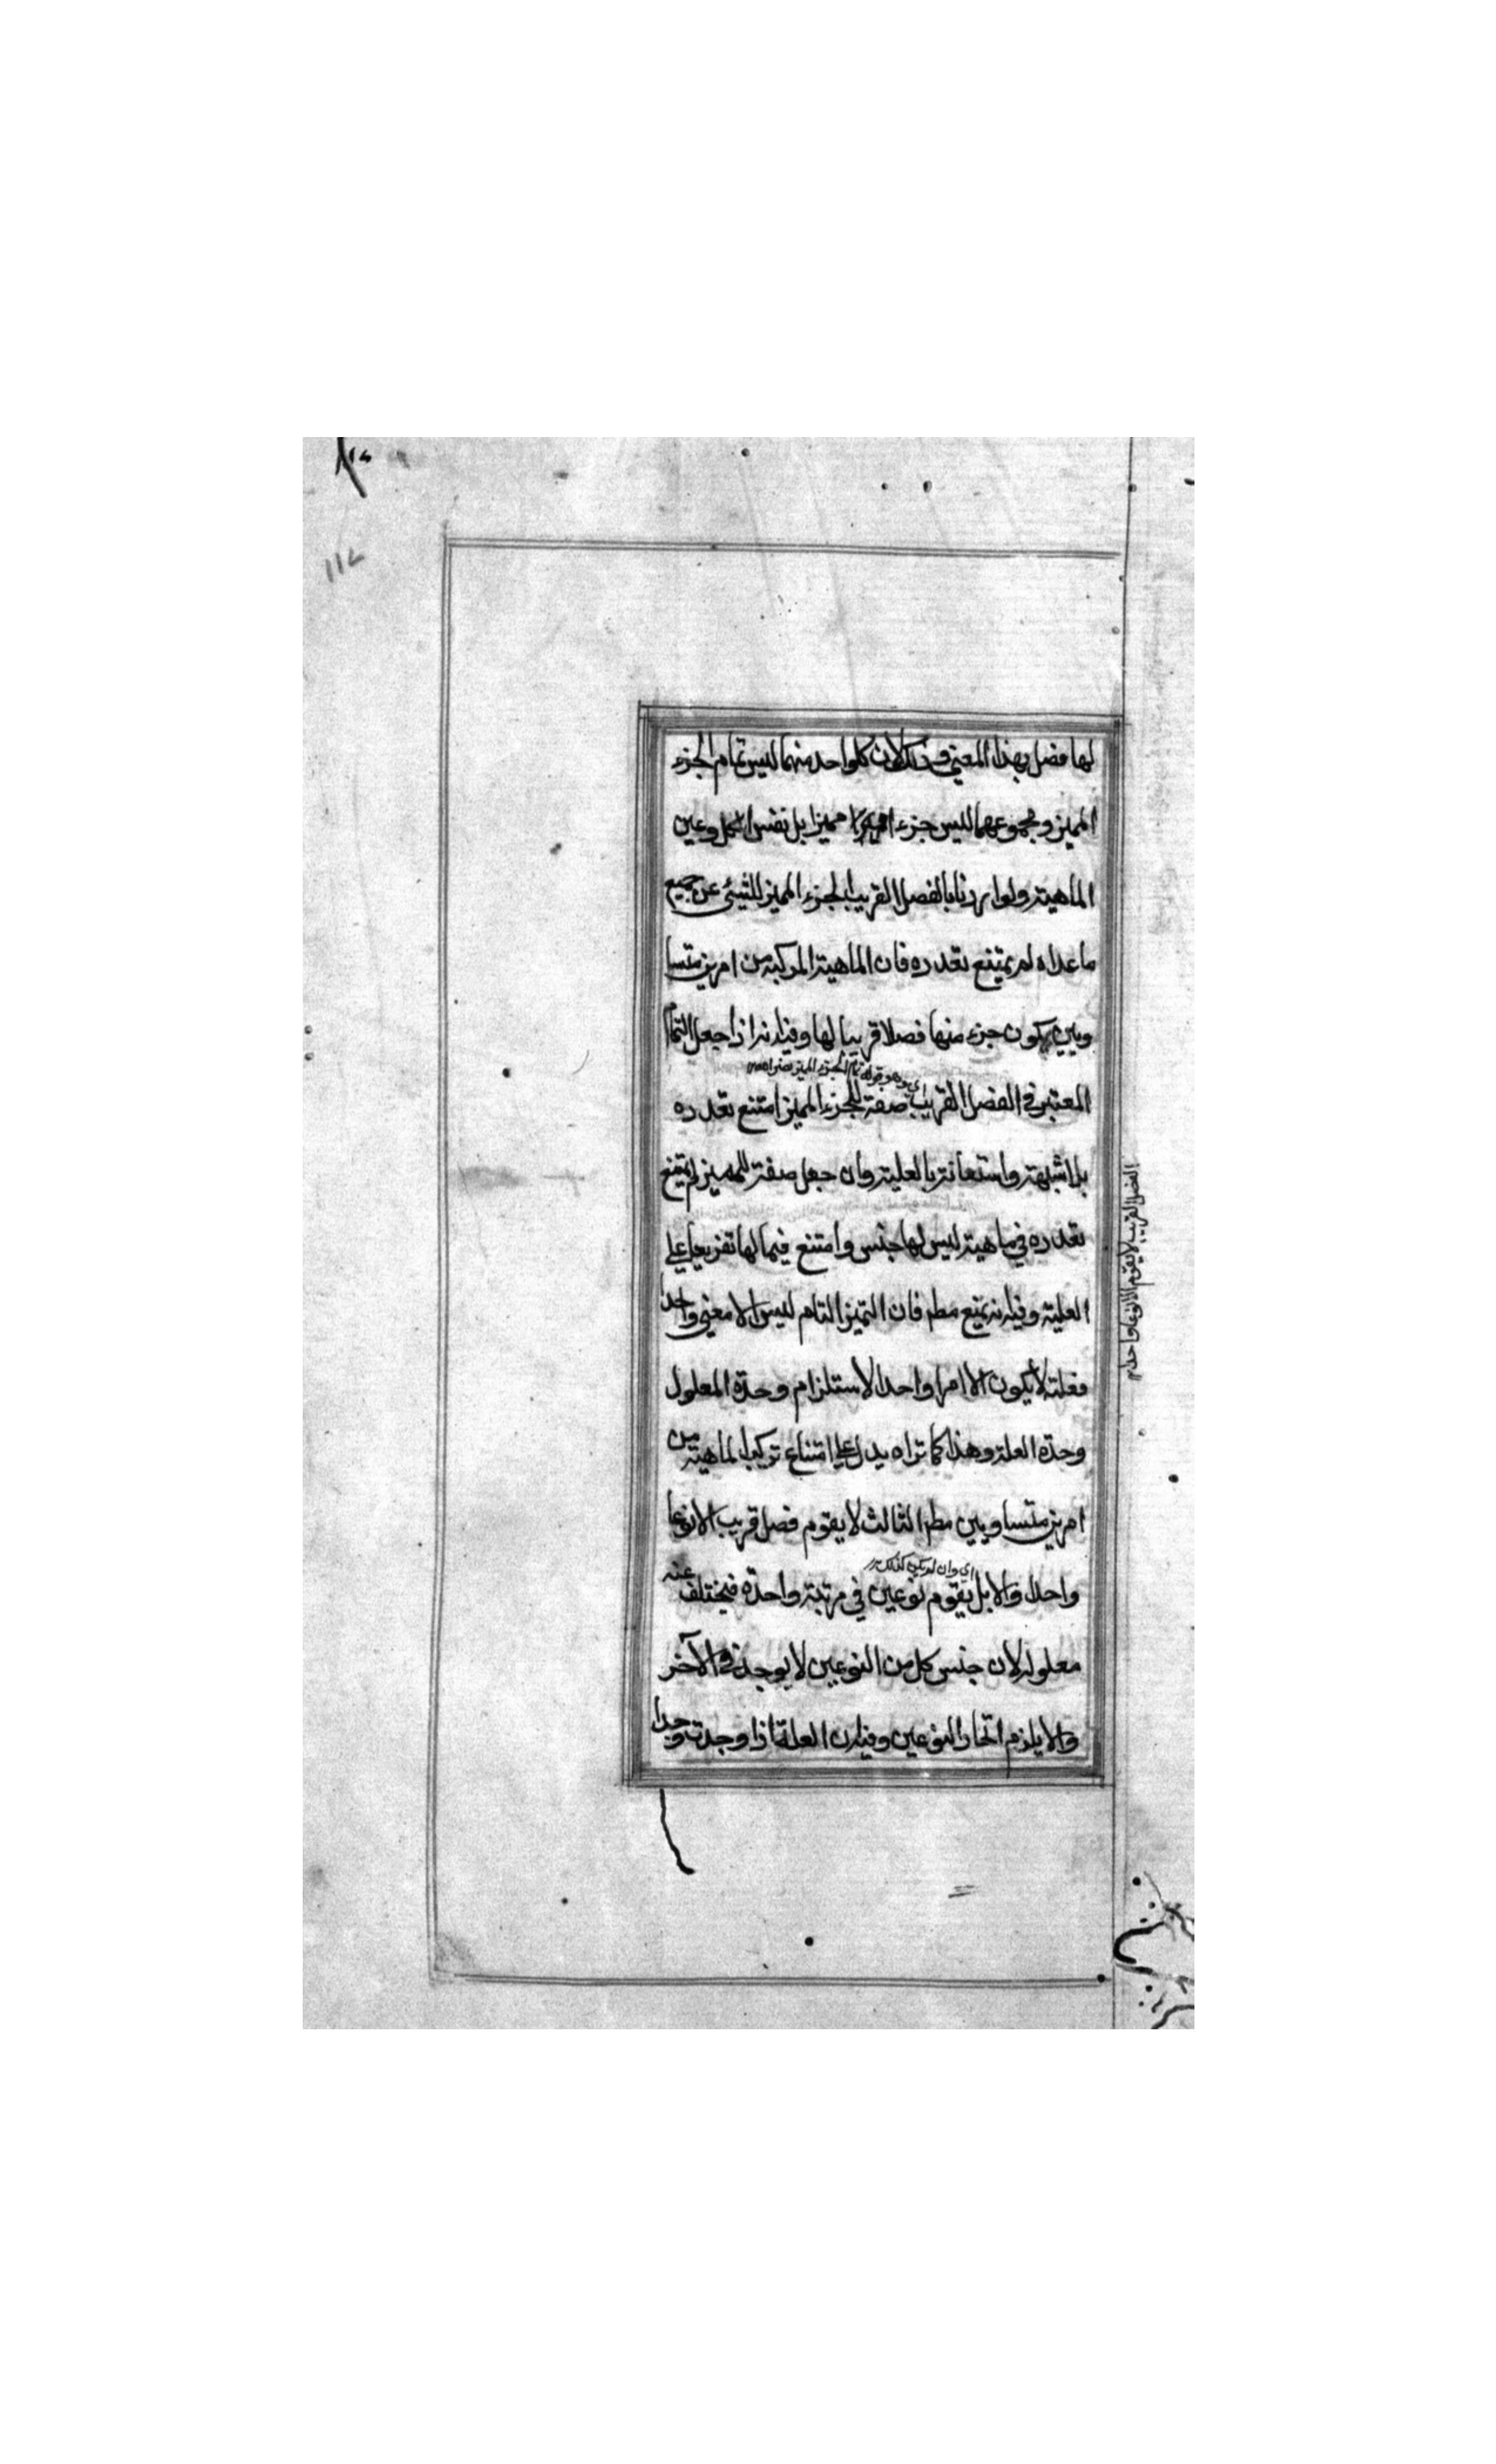 لها فصل بهذا المعنى وذلك لان كلواحد منهما ليس تمام الجزء
المميز ومجموعهما ليس جزء مميزا بل نفس الكل وعين
الماهية ولو اردنا بالفصل القريب الجزء المميز للشيئ عن جميع
ما عداه لم يمتنع تعدده فان الماهية المركبة من امرين متسا
ويين يكون جزء منها فصلا قريبا لها وفيه انه اذا جعل التمام
اي وهو قوله تمام الجزء المميز
المعتبر في الفصل القريب صفة للجزء المميز امتنع تعدده
بلا شبهة واستعانة بالعلية وان جعل صفة للمميز لم يمتنع
تعدده في ماهية ليس لها جنس وامتنع فيما لها تفريعا على
العلية وفيه انه يمتنع مطر فان التميز التام ليس الا معنى واحدا
فعلته لا يكون الا امرا واحدا لاستلزام وحدة المعلول
وحدة العلة وهذا كما تراه يدل على امتناع تركب الماهية من
امرين متساويين مطر الثالث لا يقوم فصل قريب الا نوعا
اي وان لم يكن كذلك
واحدا والا بل يقوم نوعين في مرتبة واحدة فيختلف عنه
معلوله لان جنس كل من النوعين لا يوجد في الآخر
والا يلزم اتحاد النوعين وفيه ان العلة اذا وجدت وجدا
الفصل القريب لا يقوم الا نوعا واحدا
١١٢